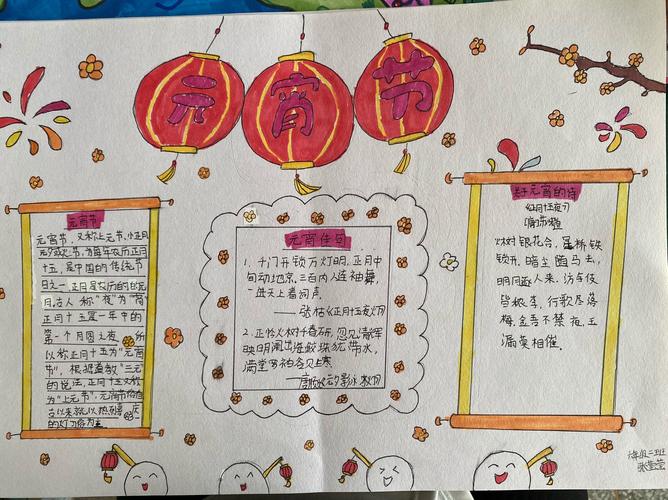 元宵节
元宵节
元宵节，又称上元节、小正月
元夕或灯节，为每年农历正月
十五，是中国的传统节
日之一，正月是农历的
月，古人称"夜"为"宵"
正月十五是一年中的
第一个月圆之夜，所
以称正月十五为"元宵
节"，根据道教"三元"
的说法，正月十五又称
为"上元节"，元宵节
古以来就以热烈喜庆
的灯习俗为主
元宵佳句
1、千门开锁万灯明，正月中
旬动地京，三百内人连袖舞
一进天上着词声
——张祜《正月十五夜灯》
2、正怜火树千春妍，忽见清辉
映月阑
满堂
——唐
关于元宵的诗
《正月十五夜》
苏味道
火树银花合，星桥铁
锁开，暗尘随马去，
明月逐人来，游伎
皆秾李，行歌尽落
梅，金吾不禁夜，玉
漏莫相催。
六年级二班